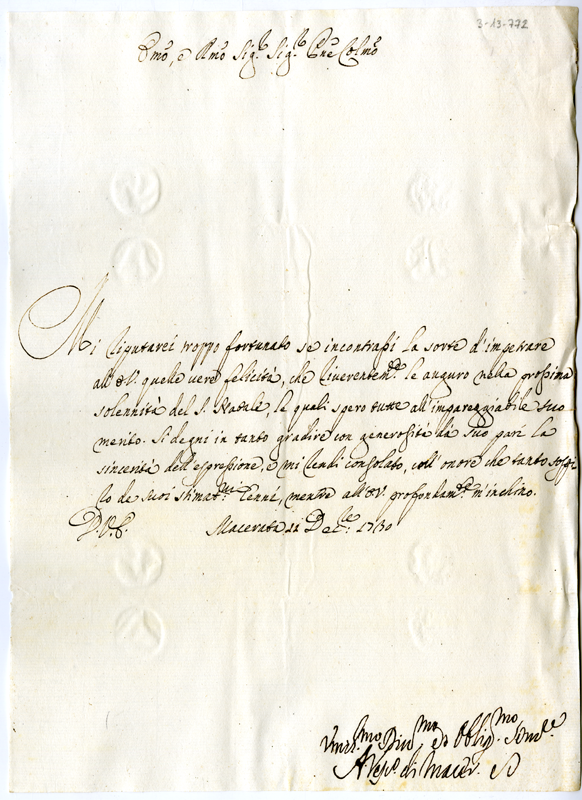 3-13-772
Emo, e Rmo Sig.r Sig.r Pne Colmo
Mi riputarei troppo fortunato se incontrassi la sorte d'impetrare
all'E.V. quelle vere felicità, che riverentem.te le auguro nella prossima
solennità del S. Natale, le quali spero tutte all'impareggiabile suo
merito. Si degni in tanto gradire con generosità da suo pari la
sincerità dell'espressione, e mi rendi consolato, coll'onore che tanto sospi
ro de suoi stimat.mi Cenni, mentre all'E.V. profondam.te m'inchino.
D.V.E. Macerata 12 Dec.re 1730
Umil.mo Div.mo ed Oblig.mo Serv.re
di Macer.